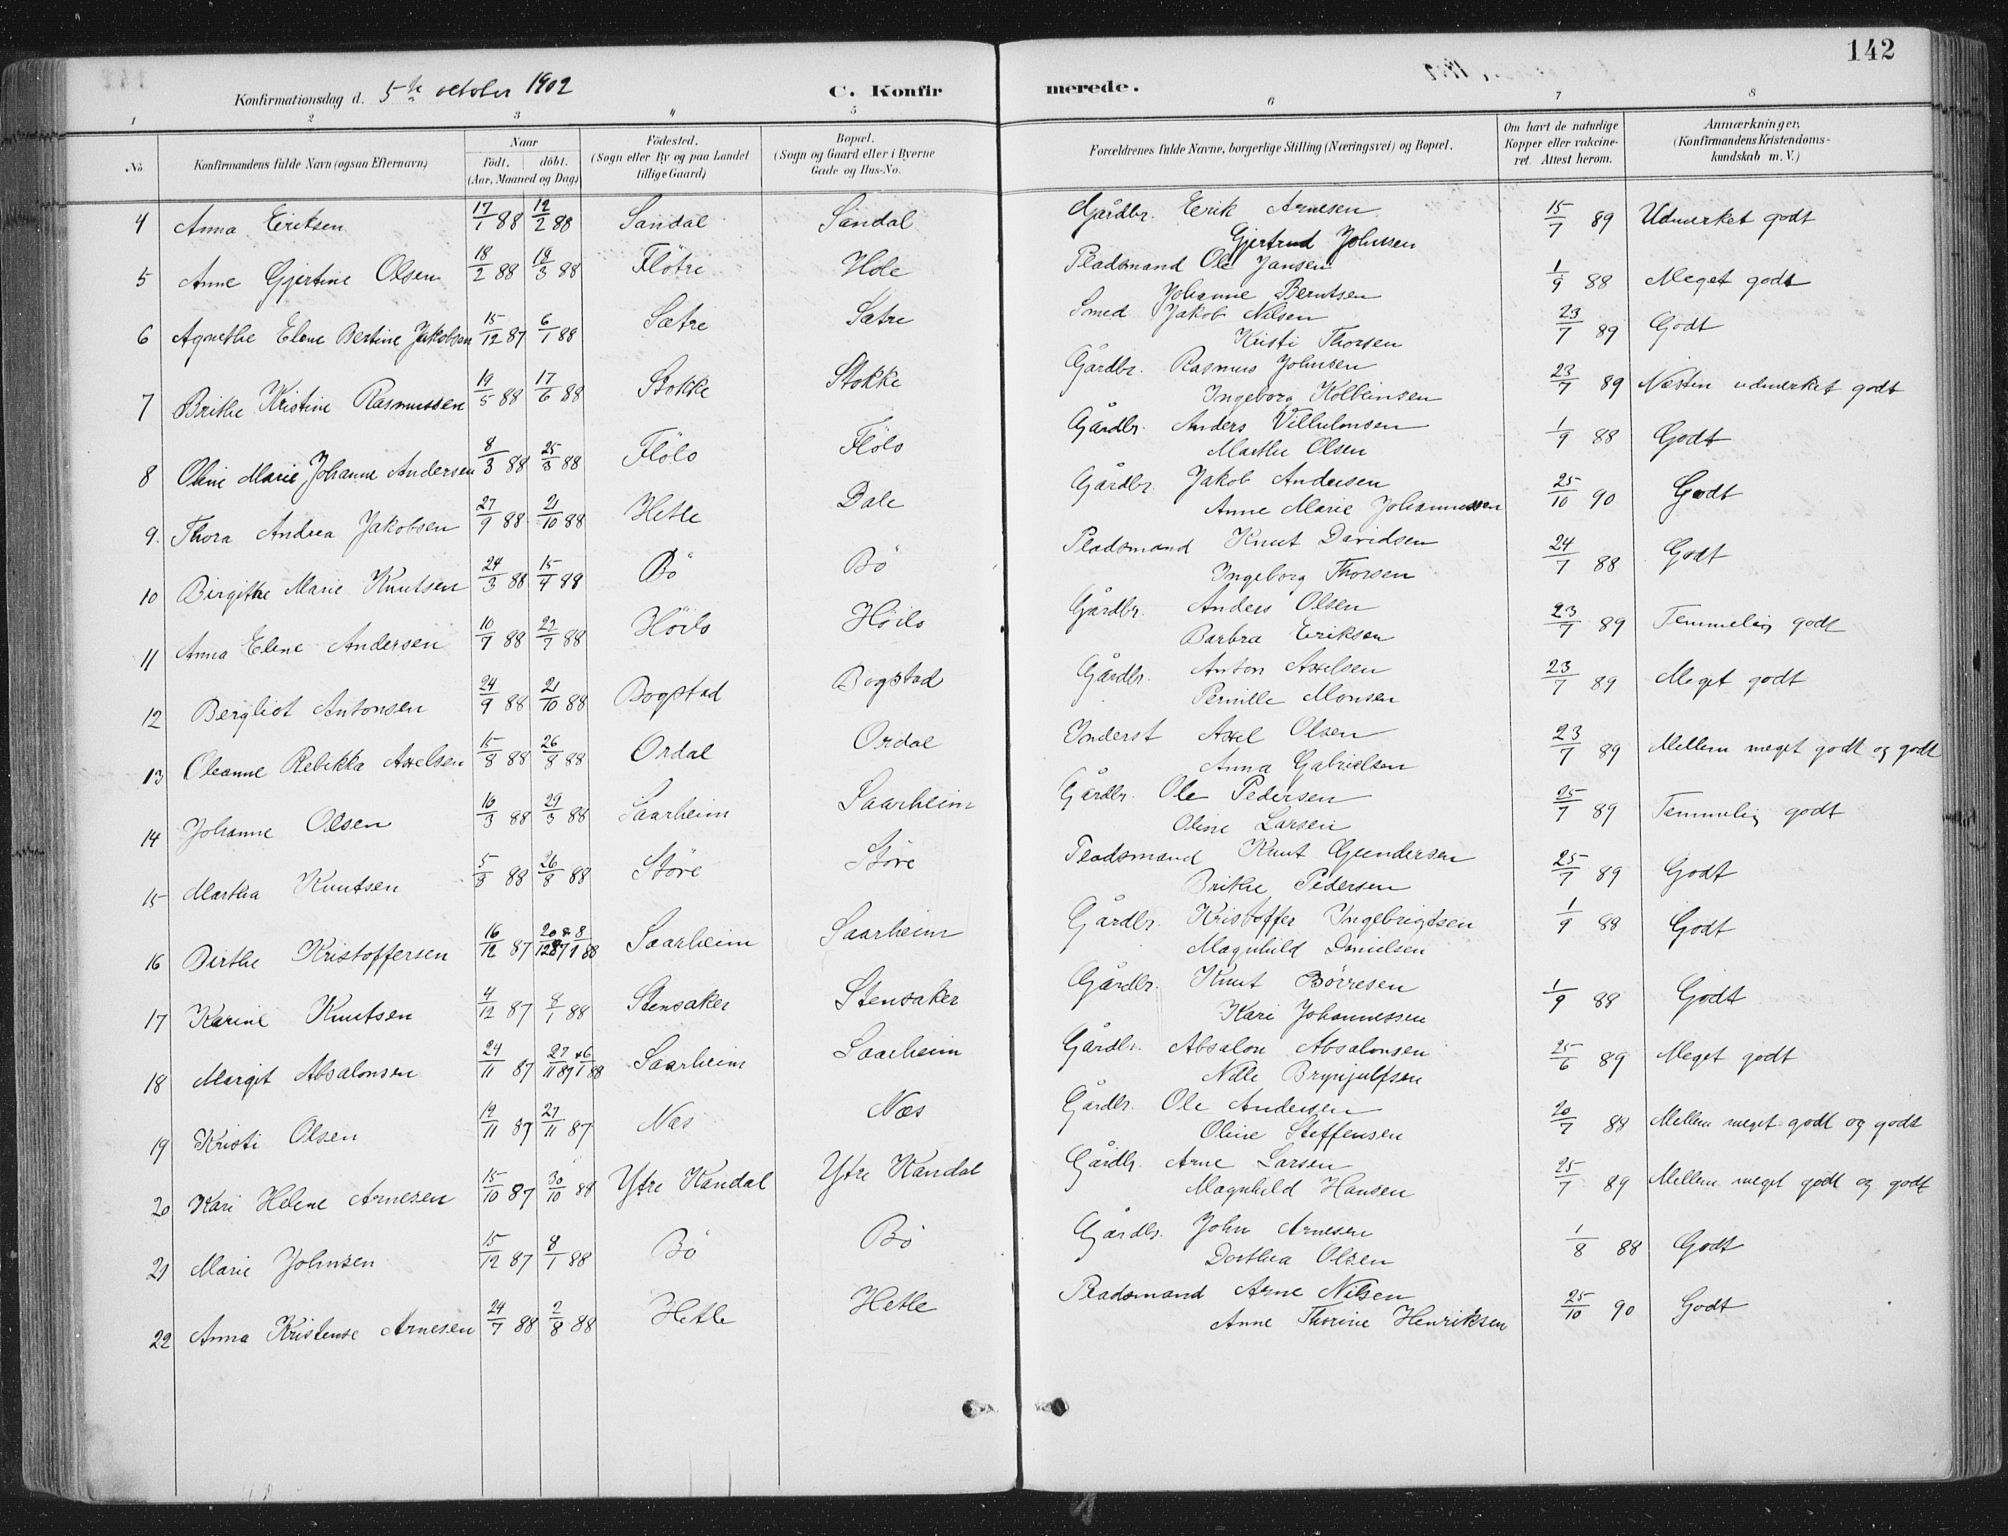 142
Konfirmationsdag d. 5te october 1902 C. Konfirmerede.
1 2 3 4 5 6 7 8
No Konfirmandens fulde Navn (ogsaa Efternavn) Naar Födt. döbt. (Aar, Maaned og Dag) Födested. (Sogn eller By og paa Landet tillige Gaard) Bopæl. (Sogn og Gaard eller i Byerne Gade og Hus-No. Forældrenes fulde Navne, borgerlige Stilling (Næringsvei) og Bopæl. Om havt de naturlige Kopper eller vakcineret. Attest herom. Anmærkninger, (Konfirmandens Kristendomskundskab m. V.)
4 Anna Eriksen 17/1 88 12/2 88 Sandal Sandal Gårdbr. Erik Arnesen 15/7 89 Udmerket godt
Gjertrud Johnsen
5 Anne Gjertine Olsen 18/2 88 18/3 88 Flötre Hole Pladsmand Ole Jansen 1/9 88 Meget godt
Johanne Berntsen
6 Agnethe Elene Bertine Jakobsen 15/12 87 6/1 88 Sætre Sætre Smed Jakob Nilsen 23/7 89 Godt
Kristi Thorsen
7 Brithe Kristine Rasmussen 19/5 88 17/6 88 Stokke Stokke Gårdbr. Rasmus Johnsen 23/7 89 Næsten udmerket godt
Ingeborg Kolbeinsen
8 Oline Marie Johanne Andersen 8/3 88 25/3 88 Flölo Flölo Gårdbr. Anders Villumsen 1/9 88 Godt
Marthe Olsen
9. Thora Andrea Jakobsen 27/9 88 21/10 88 Hetle Dale Gårdbr. Jakob Andersen 25/10 90 Godt
Anne Marie Johannessen
10 Birgithe Marie Knutsen 24/3 88 15/4 88 Bö Bö Pladsmand Knut Davidsen 24/7 88 Godt
Ingeborg Thorsen
11 Anna Elene Andersen 10/7 88 22/7 88 Höilo Höilo Gårdbr. Anders Olsen 23/7 89 Temmelig godt
Barbra Eriksen
12 Bergliot Antonsen 24/9 88 21/10 88 Bogstad Bogstad Gårdbr. Anton Axelsen 23/7 89 Meget godt
Pernille Monsen
13 Oleanne Rebikka Axelsen 15/8 88 26/8 88 Ordal Ordal Inderst Axel Olsen 23/7 89 Mellem meget godt og godt
Anna Gabrielsen
14 Johanne Olsen 16/3 88 29/3 88 Saarheim Saarheim Gårdbr. Ole Pedersen 25/7 89 Temmelig godt
Oline Larsen
15 Martha Knutsen 5/8 88 26/8 88 Störe Störe Pladsmand Knut Gundersen 25/7 89 Godt
Brithe Pedersen
16 Birthe Kristoffersen 16/12 87 20/12 87 & 8/1 88 Saarheim Saarheim Gårdbr. Kristoffer Ingebrigtsen 1/9 88 Godt
Magnhild Danielsen
17 Karine Knutsen 4/12 87 8/1 88 Stensaker Stensaker Gårdbr. Knut Börresen 1/9 88 Godt
Kari Johannessen
18 Margit Absalonsen 24/11 87 27/11 87 & 6/1 88 Saarheim Saarheim Gårdbr. Absalon Absalonsen 25/6 89 Meget godt
Nille Brynjulfsen
19 Kristi Olsen 19/11 87 27/11 87 Næs Næs Gårdbr. Ole Andersen 20/7 88 Mellem meget godt og godt
Oline Steffensen
20 Kari Helene Arnesen 15/10 87 30/10 88 Ytre Kandal Ytre Kandal Gårdbr. Arne Larsen 25/7 89 Mellem meget godt og godt
Magnhild Hansen
21 Marie Johnsen 15/12 87 8/1 88 Bö Bö Gårdbr. John Arnesen 1/8 88 Godt
Dorthea Olsen
22 Anna Kristense Arnesen 24/7 88 2/8 88 Hetle Hetle Pladsmand Arne Nilsen 25/10 90 Godt
Anne Thorine Henriksen